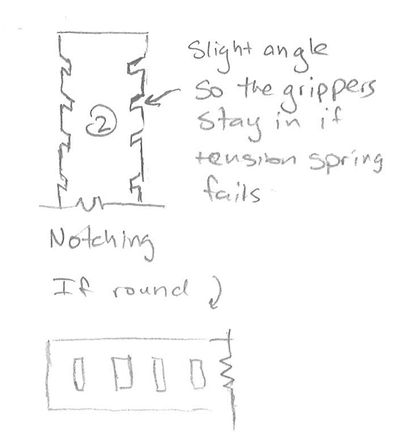 Slight angle
so the grippers
stay in if
tension spring
fails
2
Notching
If round